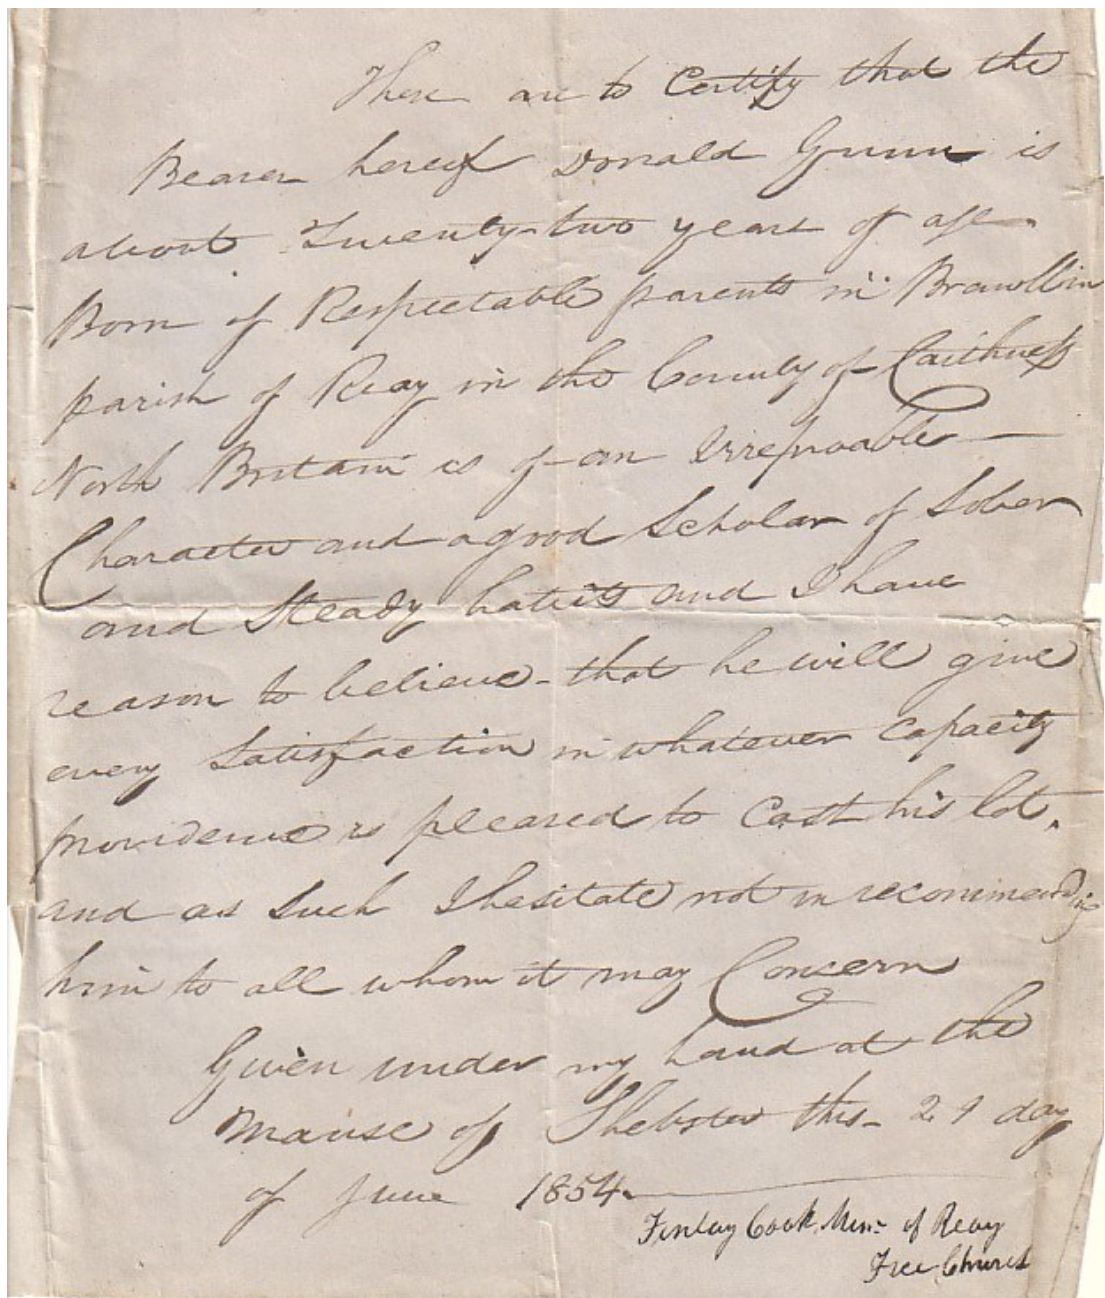 These are to Certify that the
Bearer hereof Donald Gunn is
about Twenty-two years of age
Born of Respectable parents in Brawlbin
parish of Reay in the County of Caithness
North Britain is of an Irreproable
Character and a good Scholar of Sober
and Steady habits and I have
reason to believe that he will give
every Satisfaction in whatever Capacity
providence is pleased to Cast his lot,
and as Such I hesitate not in recommending
him to all whom it may Concern
Given under my hand at the
Manse of Shebster this 29 day
of June 1854
Finlay Cook Minr of Reay
Free Church